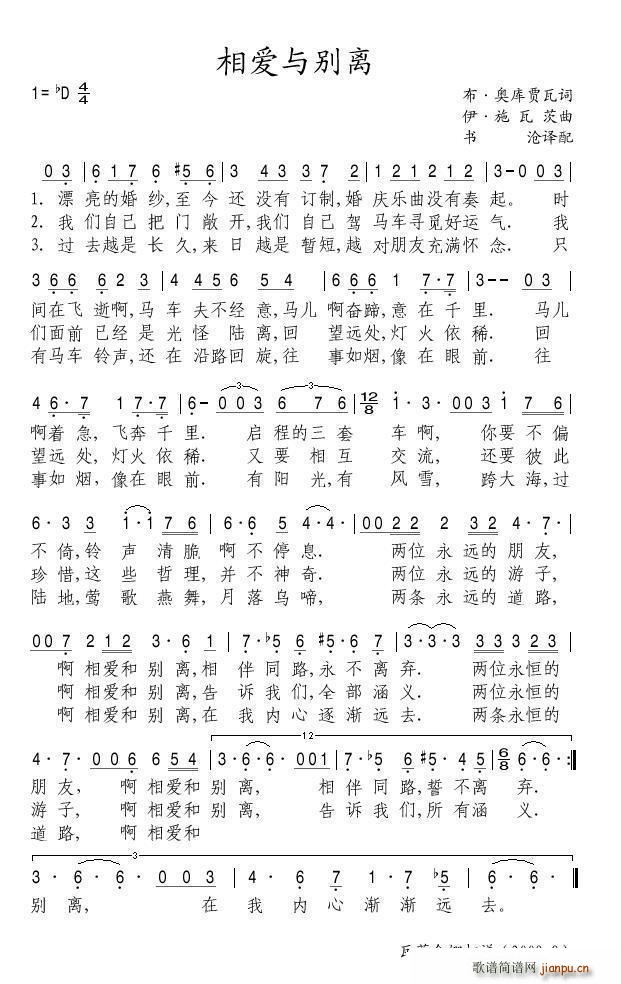 相爱与别离
1=♭D 4/4
布·奥库贾瓦词
伊·施瓦茨曲
书 沧译配
0 3 | 6 1 7 6 #5 6 | 3 4 3 3 7 | 2 1 2 1 2 1 2 | 3 - 0 0 3 |
1. 漂亮的婚纱,至今还没有订制,婚庆乐曲没有奏起。时
2. 我们自己把门敞开,我们自己驾马车寻觅好运气. 我
3. 过去越是长久,来日越是暂短,越对朋友充满怀念. 只
3 6 6 6 6 2 3 | 4 3 4 6 6 5 4 | 3 6 6 6 6 1 7 · 7 | 3 - - 0 3 |
间在飞逝啊,马车夫不经意,马儿啊奋蹄,意在千里. 马儿
们面前已经是光怪陆离,回望远处,灯火依稀. 回
有马车铃声,还在沿路回旋,往事如烟,像在眼前. 往
4 6 · 7 1 7 · 7 | 6 - 0 0 3 6 7 6 | 12/8 1 · 3 · 0 0 3 1 7 1 |
啊着急,飞奔千里. 启程的三套车啊, 你要不偏
望远处,灯火依稀. 又要相互交流,还要彼此
事如烟,像在眼前. 有阳光,有风雪,跨大海,过
6 · 3 3 1 · 1 7 6 | 6 · 6 5 4 · 4 · | 0 0 2 2 2 2 2 4 · 7 · |
不倚,铃声清脆啊不停息. 两位永远的朋友,
珍惜,这些哲理,并不神奇. 两位永远的游子,
陆地,莺歌燕舞,月落乌啼, 两条永远的道路,
0 0 7 2 1 2 3 · 6 1 | 7 · ♭5 6 #5 · 6 7 | 3 · 3 · 3 · 3 3 3 3 2 3 |
啊相爱和别离,相伴同路,永不离弃. 两位永恒的
啊相爱和别离,告诉我们,全部涵义. 两位永恒的
啊相爱和别离,在我内心逐渐远去. 两条永恒的
12
4 · 7 · 0 0 6 6 5 4 | 3 · 6 · 6 · 0 0 1 | 7 · ♭5 6 #5 · 4 5 | 6/8 6 · 6 · :||
朋友, 啊相爱和别离, 相伴同路,誓不离弃.
游子, 啊相爱和别离, 告诉我们,所有涵义.
道路, 啊相爱和
3
3 · 6 · 6 · 6 · 0 0 3 | 4 · 6 7 1 · 7 ♭5 | 6 · 6 · 6 · 6 · ||
别离, 在我内心渐渐远去。
歌谱简谱网
jianpu.cn